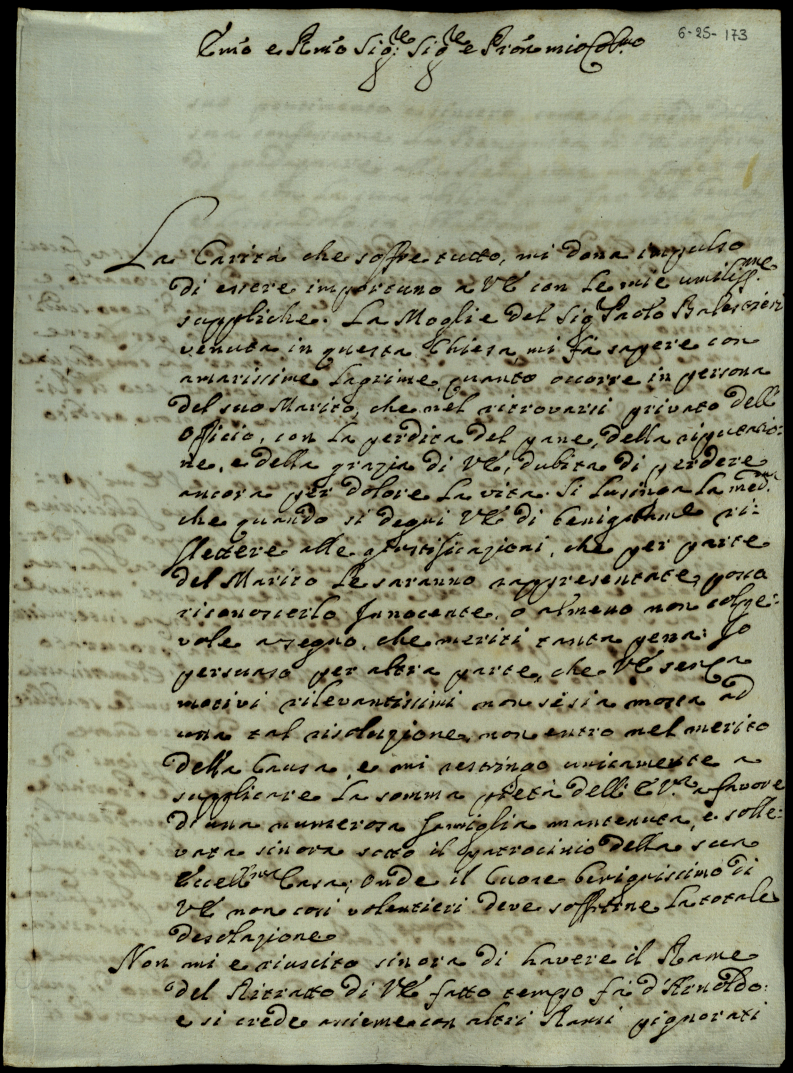 Emo e Rmo Sig:re Sig:re e Pron mio Colmo
6-25-173
La Carità che soffre tutto, mi dona impulso
di essere importuno a VE con le mie umiliss:me
suppliche. La Moglie del Sig Paolo Balestrieri
venuta in questa Chiesa mi fa sapere con
amarissime lagrime, quanto occorre in persona
del suo Marito, che nel ritrovarsi privato dell
officio, con la perdita del pane, della riputazio:
ne, e della grazia di VE, dubita di perdere
ancora per dolore la vita. Si lusinga la med:a
che quando si degni VE di benigname ri:
flettere alle giustificazioni, che per parte
del Marito le saranno rappresentate, possa
riconoscerlo Innocente, o almeno non colpe:
vole a segno, che meriti tanta pena: Io
persuaso per altra parte, che VE senza
motivi rilevantissimi non si sia mossa ad
una tal risoluzione, non entro nel merito
della Causa, e mi restringo unicamente a
supplicare la somma pietà dell E V:ra a favore
d'una numerosa famiglia mantenuta, e solle:
vata sinora sotto il patrocinio della sua
Eccell:ma Casa; onde il Cuore benignissimo di
VE non così volentieri deve soffrirne la totale
desolazione
Non mi e riuscito sinora di havere il Rame
del Ritratto di VE fatto tempo fà d'Arnoldo:
e si crede assieme con altri Rami pignorati